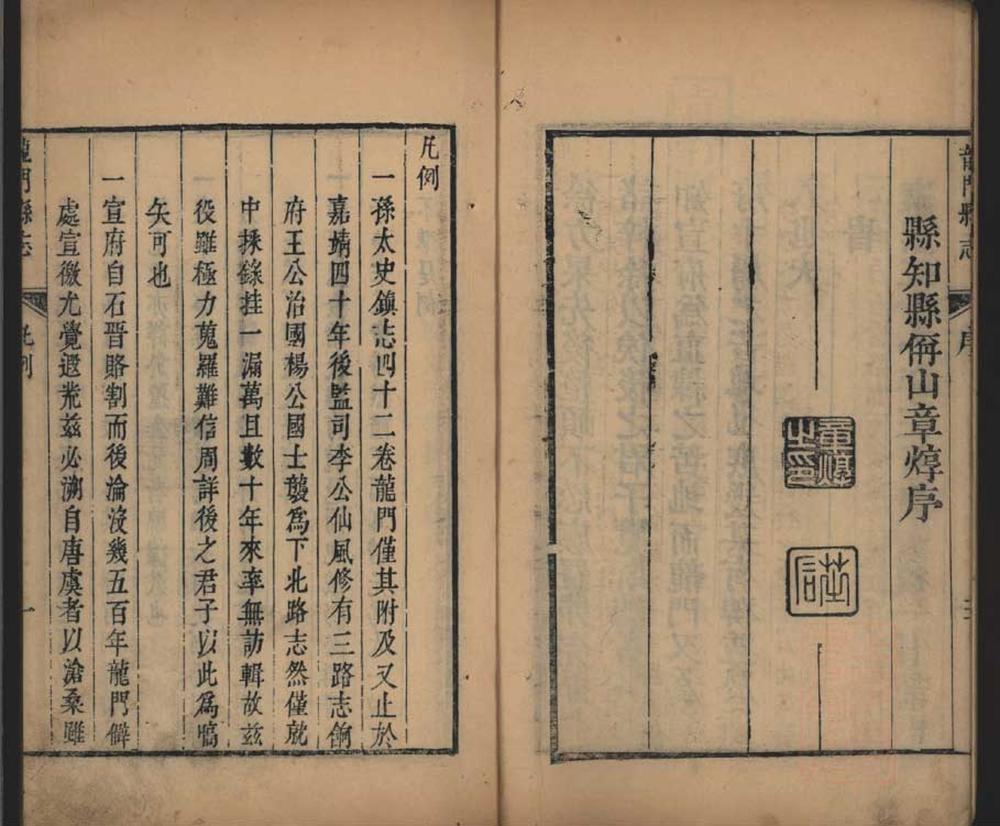 龍門縣志
序
縣知縣偁山章焞序
章焞之印
凡例
一孫太史鎮志四十二卷龍門僅其附及又止於
嘉靖四十年後監司李公仙風修有三路志餉
府王公治國楊公國士襲爲下北路志然僅就
中採錄挂一漏萬且數十年來率無訪輯故茲
役雖極力蒐羅難信周詳後之君子以此爲嚆
矢可也
一宣府自石晉賂割而後淪沒幾五百年龍門僻
處宣徼尤覺遐荒茲必溯自唐虞者以滄桑雖
龍門縣志
凡例
一